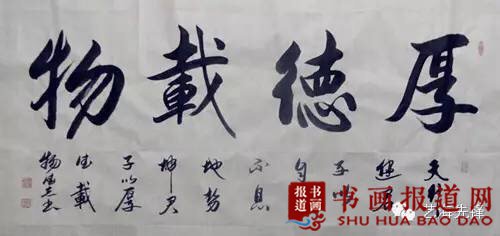 厚德載物
天行
健君
子以
自
不息
地势
坤君
子以厚
德載
物
书画
报道
书画报道网
SHU HUA BAO DAO
艺海先锋